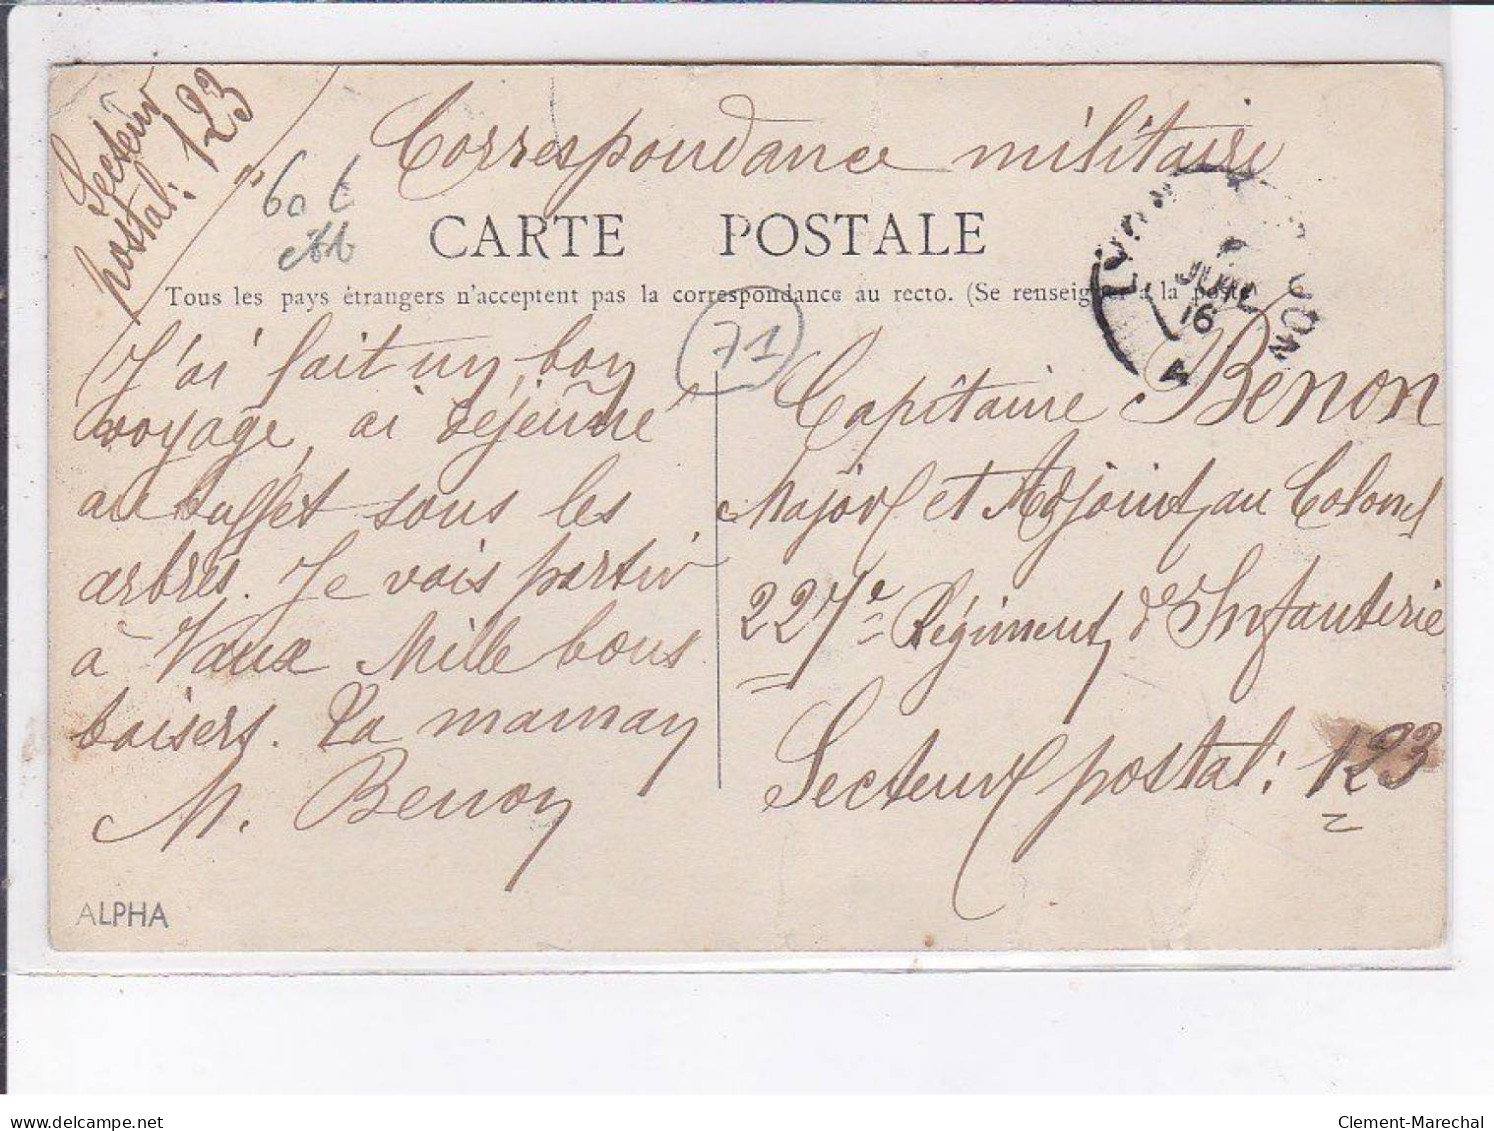 Secteur
postal: 123
Correspondance militaire
CARTE POSTALE
Tous les pays étrangers n'acceptent pas la correspondance au recto. (Se renseigner à la poste
71
J'ai fait un bon
voyage, ai déjeuné
au buffet sous les
arbres. Je vais partir
à Vaux Mille bons
baisers. Ta maman
M. Benon
Capitaine Benon
Major et Adjoint au Colonel
227e Régiment d'Infanterie
Secteur postal: 123
ALPHA
delcampe.net
Clement-Marechal